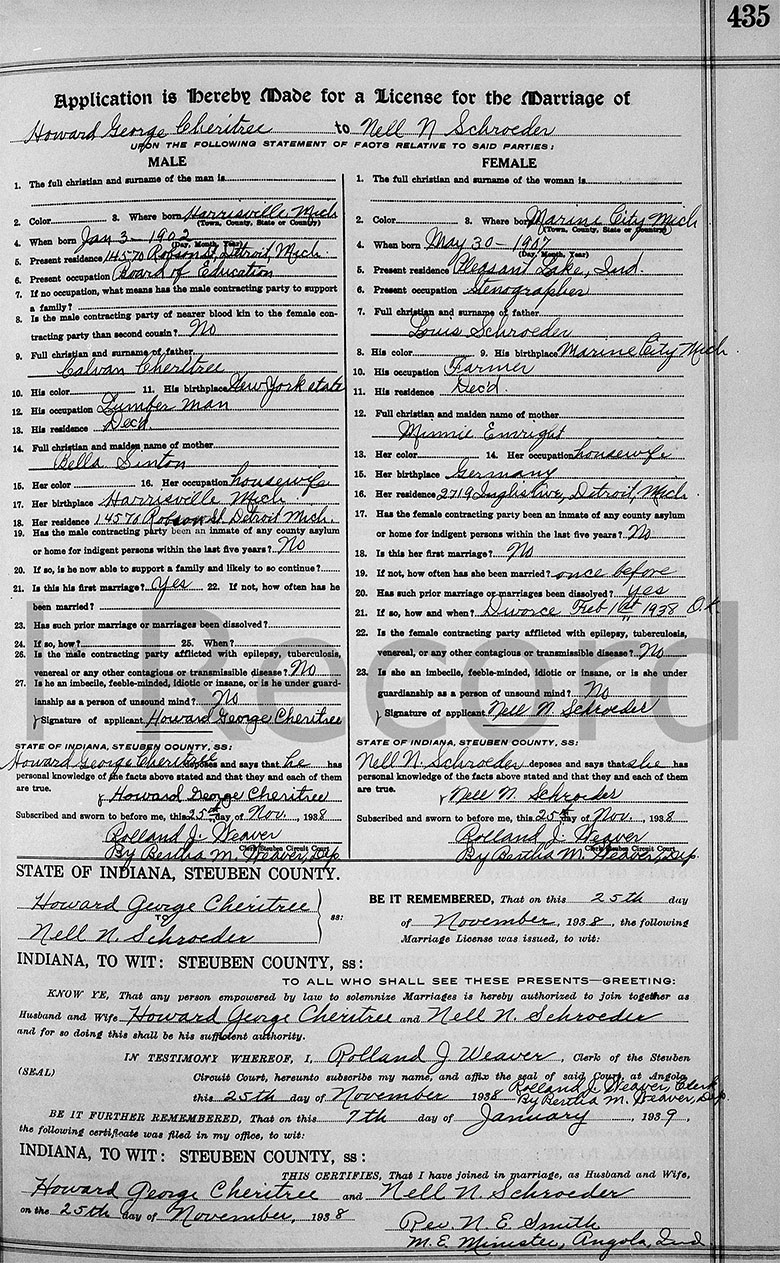 435
Application is Hereby Made for a License for the Marriage of
Howard George Cheritree to Nell N Schroeder
UPON THE FOLLOWING STATEMENT OF FACTS RELATIVE TO SAID PARTIES:
MALE
1. The full christian and surname of the man is
2. Color 3. Where born Harrisville, Mich
(Town, County, State or Country)
4. When born Jan 3 - 1902
(Day, Month, Year)
5. Present residence 14570 Robson St, Detroit, Mich.
6. Present occupation Board of Education
7. If no occupation, what means has the male contracting party to support
a family?
8. Is the male contracting party of nearer blood kin to the female con-
tracting party than second cousin? No
9. Full christian and surname of father
Calvan Cheritree
10. His color 11. His birthplace New York state
12. His occupation Lumber Man
13. His residence Dec'd
14. Full christian and maiden name of mother
Bella Sinton
15. Her color 16. Her occupation housewife
17. Her birthplace Harrisville Mich
18. Her residence 14570 Robson St Detroit Mich.
19. Has the male contracting party been an inmate of any county asylum
or home for indigent persons within the last five years? No
20. If so, is he now able to support a family and likely to so continue?
21. Is this his first marriage? Yes 22. If not, how often has he
been married?
23. Has such prior marriage or marriages been dissolved?
24. If so, how? 25. When?
26. Is the male contracting party afflicted with epilepsy, tuberculosis,
venereal or any other contagious or transmissible disease? No
27. Is he an imbecile, feeble-minded, idiotic or insane, or is he under guard-
ianship as a person of unsound mind? No
Signature of applicant Howard George Cheritree
STATE OF INDIANA, STEUBEN COUNTY, SS:
Howard George Cheritree deposes and says that he has
personal knowledge of the facts above stated and that they and each of them
are true.
Howard George Cheritree
Subscribed and sworn to before me, this 25th day of Nov., 1938
Rolland J. Weaver
Clerk Steuben Circuit Court
By Bertha M. Weaver, Dep.
FEMALE
1. The full christian and surname of the woman is
2. Color 3. Where born Marine City Mich
(Town, County, State or Country)
4. When born May 30 - 1907
(Day, Month, Year)
5. Present residence Pleasant Lake, Ind.
6. Present occupation Stenographer
7. Full christian and surname of father
Louis Schroeder
8. His color 9. His birthplace Marine City Mich.
10. His occupation Farmer
11. His residence Dec'd.
12. Full christian and maiden name of mother
Minnie Emright
13. Her color 14. Her occupation housewife
15. Her birthplace Germany
16. Her residence 2719 Detroit, Mich
17. Has the female contracting party been an inmate of any county asylum
or home for indigent persons within the last five years? No
18. Is this her first marriage? No
19. If not, how often has she been married? once before
20. Has such prior marriage or marriages been dissolved? yes
21. If so, how and when? Divorce Feb 1st 1938 O.K.
22. Is the female contracting party afflicted with epilepsy, tuberculosis,
venereal, or any other contagious or transmissible disease? No
23. Is she an imbecile, feeble-minded, idiotic or insane, or is she under
guardianship as a person of unsound mind? No
Signature of applicant Nell N Schroeder
STATE OF INDIANA, STEUBEN COUNTY, SS:
Nell N. Schroeder deposes and says that she has
personal knowledge of the facts above stated and that they and each of them
are true.
Nell N. Schroeder
Subscribed and sworn to before me, this 25th day of Nov., 1938
Rolland J. Weaver
Clerk Steuben Circuit Court
By Bertha M. Weaver, Dep.
STATE OF INDIANA, STEUBEN COUNTY.
Howard George Cheritree
TO
Nell N. Schroeder
ss:
BE IT REMEMBERED, That on this 25th day
of November, 1938, the following
Marriage License was issued, to wit:
INDIANA, TO WIT: STEUBEN COUNTY, ss:
TO ALL WHO SHALL SEE THESE PRESENTS—GREETING:
KNOW YE, That any person empowered by law to solemnize Marriages is hereby authorized to join together as
Husband and Wife Howard George Cheritree and Nell N. Schroeder
and for so doing this shall be his sufficient authority.
IN TESTIMONY WHEREOF, I, Rolland J Weaver, Clerk of the Steuben
(SEAL) Circuit Court, hereunto subscribe my name, and affix the seal of said Court, at Angola,
this 25th day of November 1938 Rolland J. Weaver, Clerk
By Bertha M. Weaver, Dep.
BE IT FURTHER REMEMBERED, That on this 7th day of January 1939,
the following certificate was filed in my office, to wit:
INDIANA, TO WIT: STEUBEN COUNTY, ss:
THIS CERTIFIES, That I have joined in marriage, as Husband and Wife,
Howard George Cheritree and Nell N Schroeder
on the 25th day of November, 1938
Rev. N. E. Smith
M. E. Minister, Angola, Ind
Record